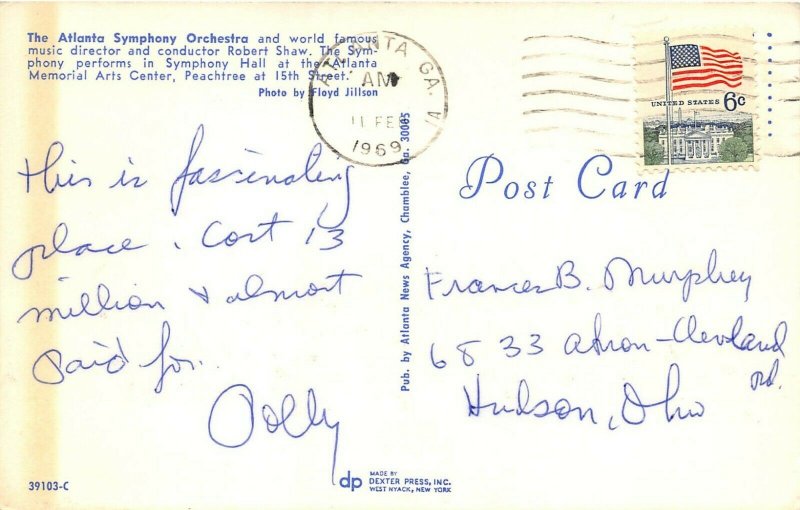 The Atlanta Symphony Orchestra and world famous
music director and conductor Robert Shaw. The Sym-
phony performs in Symphony Hall at the Atlanta
Memorial Arts Center, Peachtree at 15th Street.
Photo by Floyd Jillson
ATLANTA GA.
AM
11 FEB
1969
UNITED STATES 6c
This is fascinating
place. Cost 13
million & almost
paid for.
Polly
Pub. by Atlanta News Agency, Chamblee, Ga. 30005
Post Card
Frances B. Murphey
6833 Akron-Cleveland
rd.
Hudson, Ohio
39103-C
dp MADE BY
DEXTER PRESS, INC.
WEST NYACK, NEW YORK